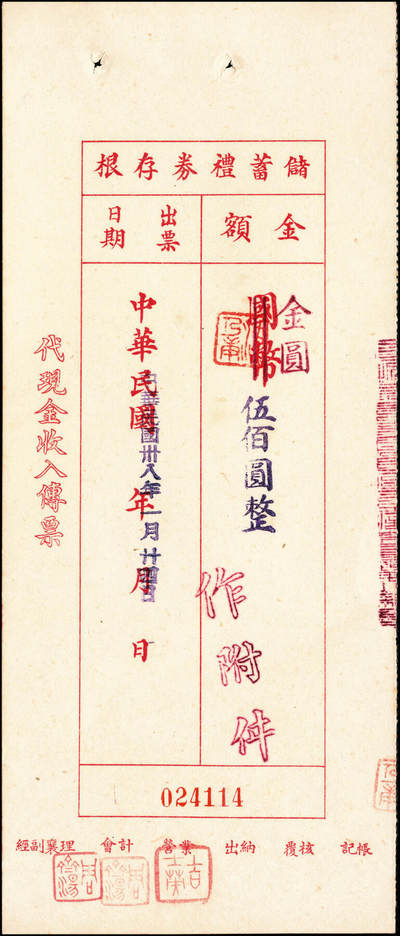 儲蓄禮券存根
金額
出票日期
金圓
國幣
伍佰圓整
作附件
中華民國 年 月 日
中華民國卅八年一月廿四日
代現金收入傳票
024114
記帳 覆核 出納 營業 會計 經副襄理